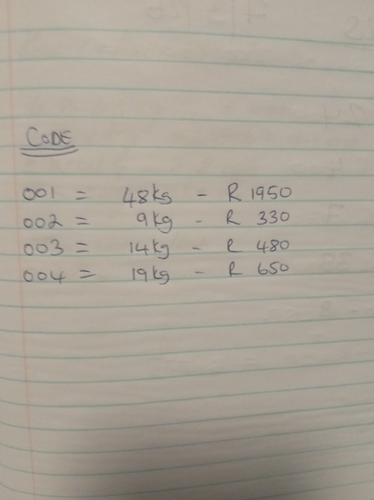 CODE
001 = 48kg - R 1950
002 = 9kg - R 330
003 = 14kg - R 480
004 = 19kg - R 650